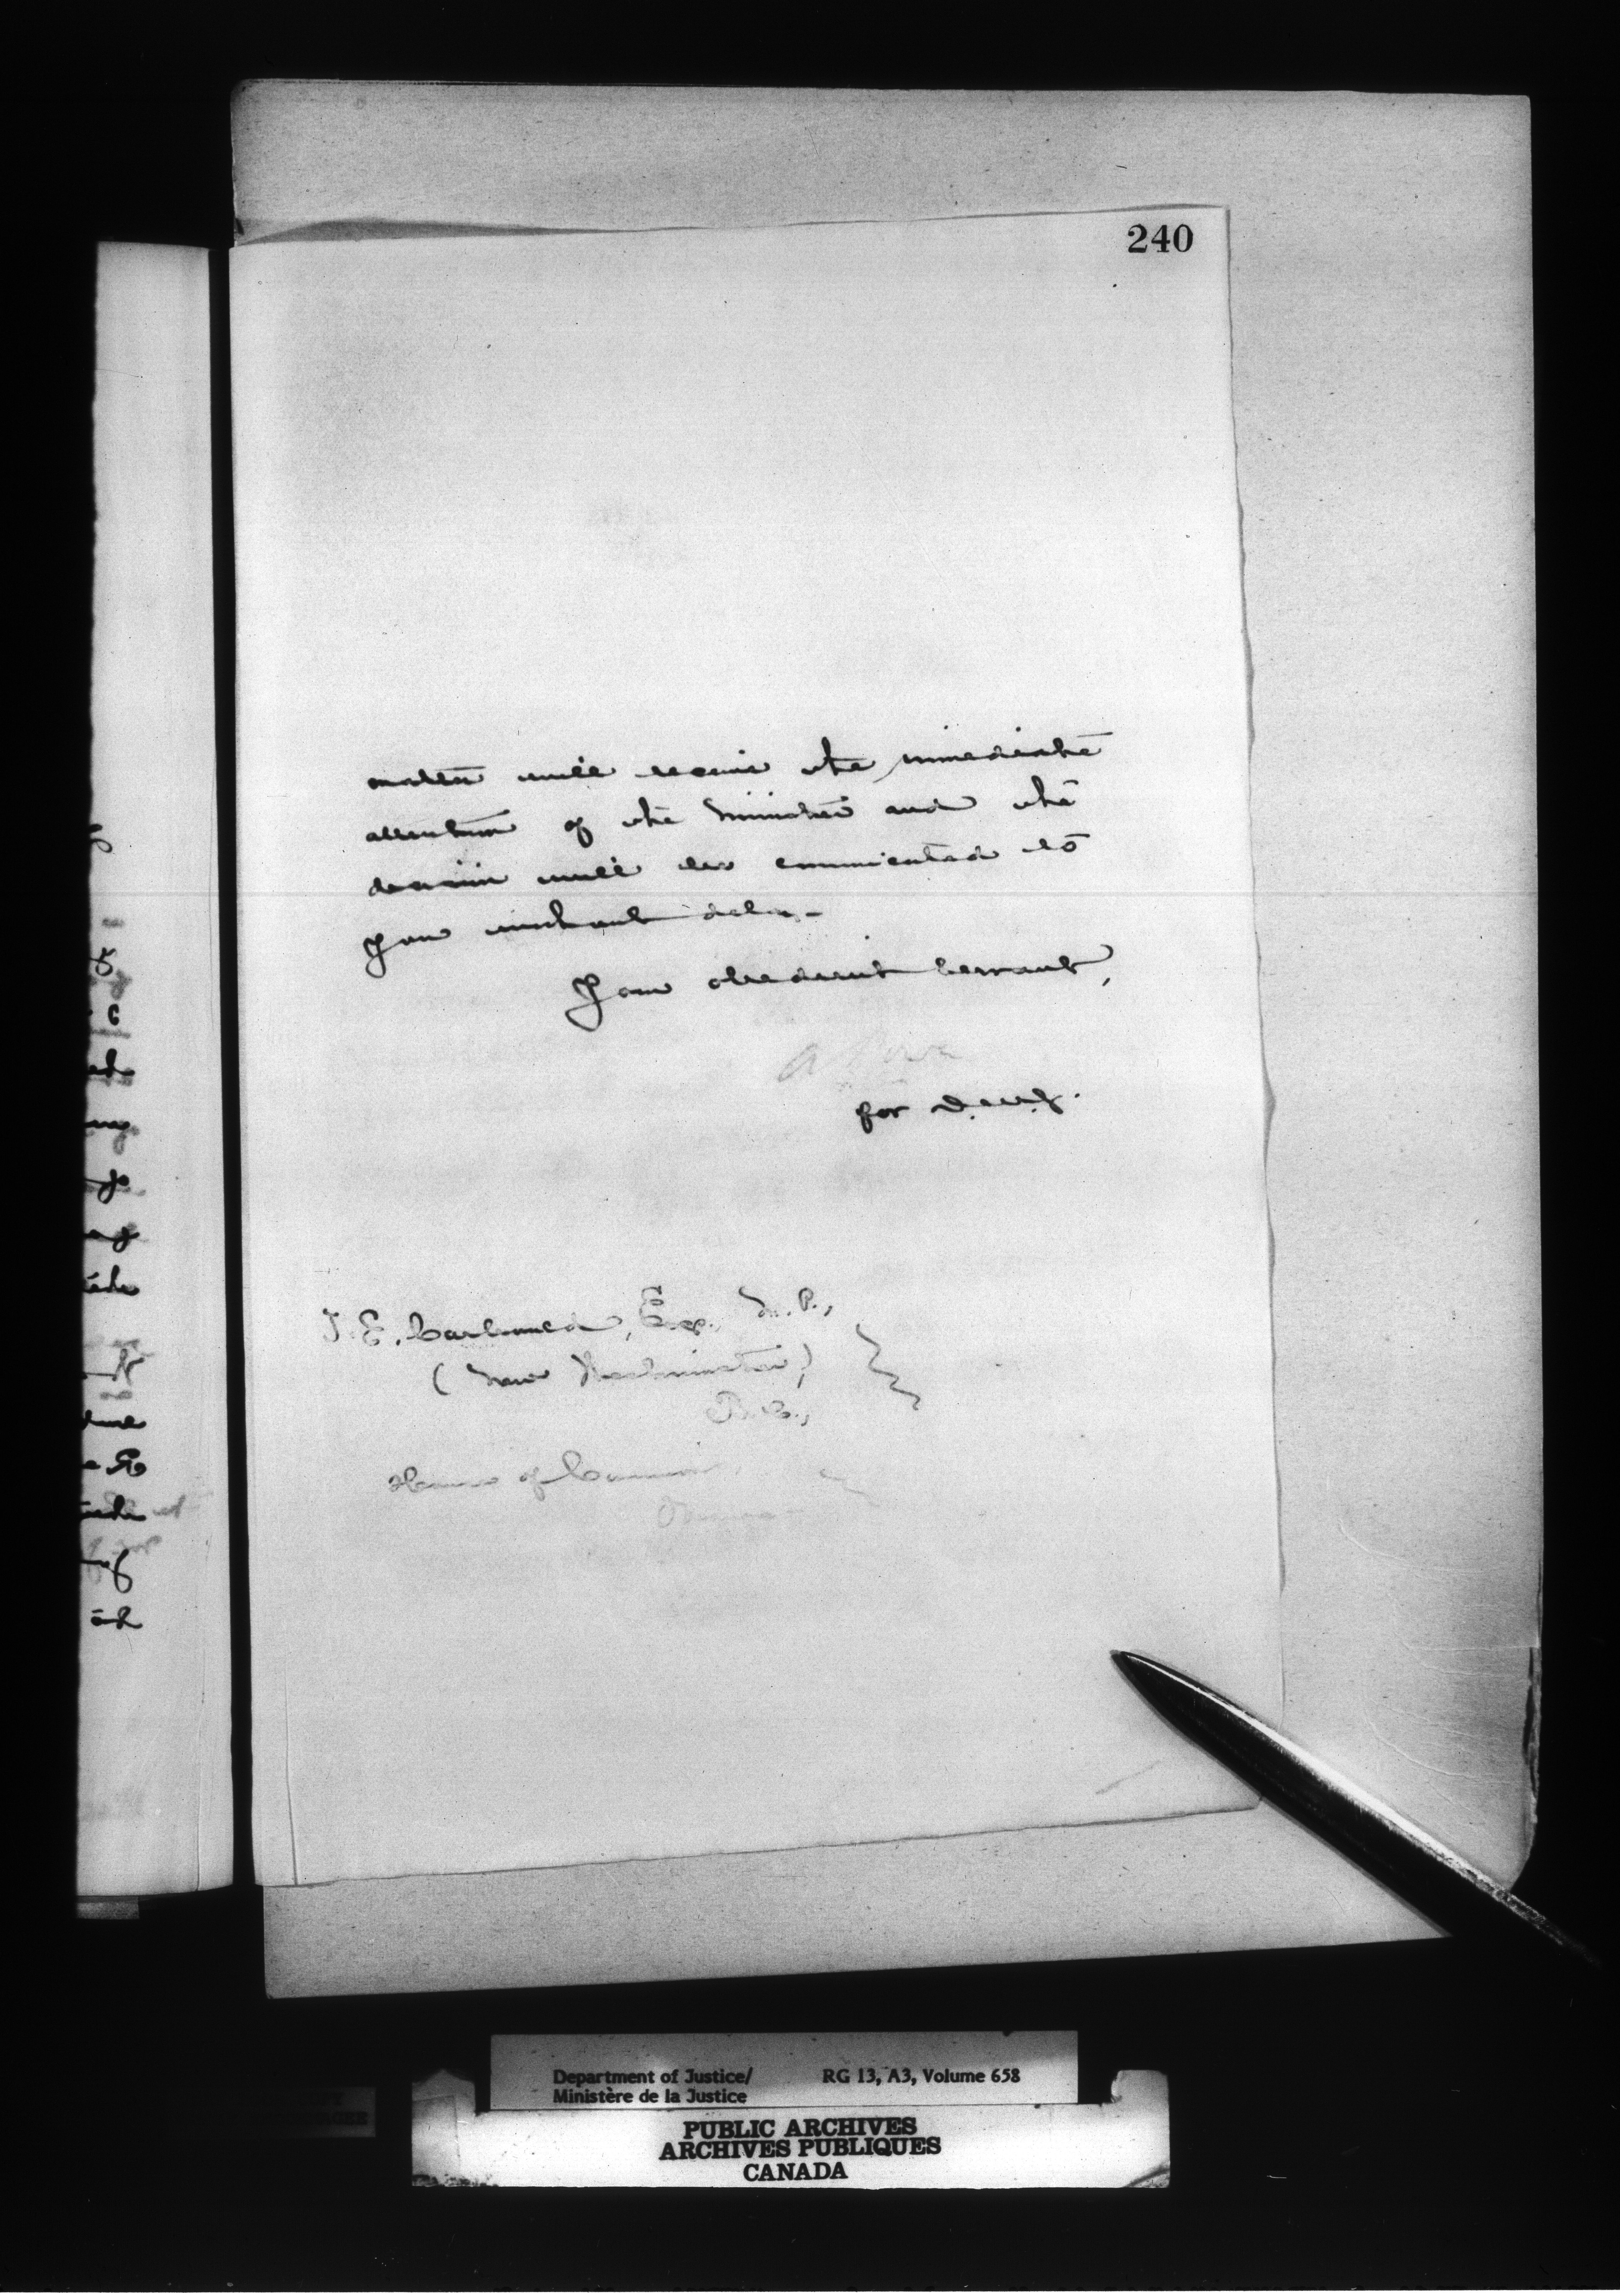 240
matter will receive the immediate
attention of the Minister and the
decision will be communicated to
you without delay.
Your obedient servant,
A Power
for D.M.J.
Esq., M.P.,
(New Westminster)
B.C.,
House of Commons,
Ottawa
Department of Justice/ RG 13, A3, Volume 658
Ministère de la Justice
PUBLIC ARCHIVES
ARCHIVES PUBLIQUES
CANADA